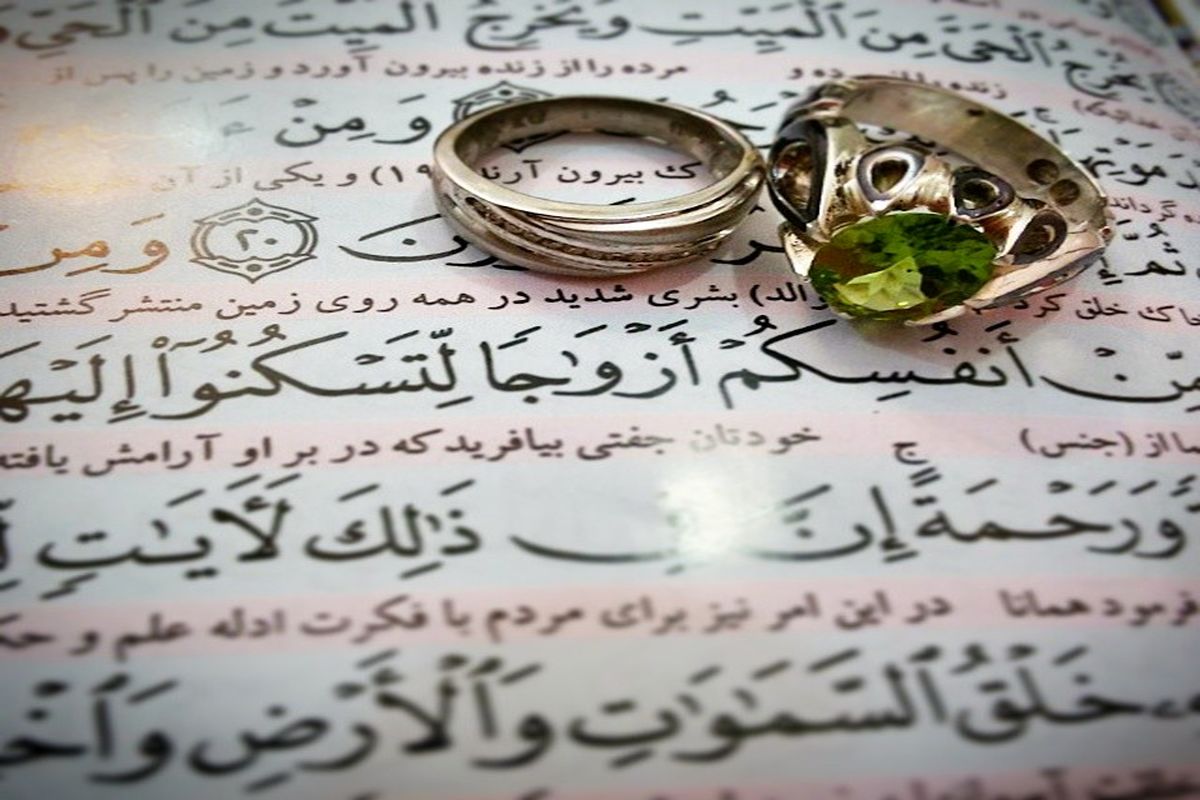 يُخْرِجُ ٱلْحَىَّ مِنَ ٱلْمَيِّتِ وَيُخْرِجُ ٱلْمَيِّتَ مِنَ ٱلْحَىِّ
مرده را از زنده بیرون آورد و زمین را پس از
وَمِنْ ءَ
ک بیرون آرند ۱۹) و یکی از آن
ونَ ٢٠ وَمِنْ
خاک خلق کرد والد) بشری شدید در همه روی زمین منتشر گشتید
مِّنْ أَنفُسِكُمْ أَزْوَٰجًا لِّتَسْكُنُوٓا۟ إِلَيْهَا
از (جنس) خودتان جفتی بیافرید که در بر او آرامش یافته
وَرَحْمَةً ۚ إِنَّ فِى ذَٰلِكَ لَـَٔايَـٰتٍ
فرمود همانا در این امر نیز برای مردم با فکرت ادله علم و حک
خَلْقُ ٱلسَّمَـٰوَٰتِ وَٱلْأَرْضِ وَٱخْ